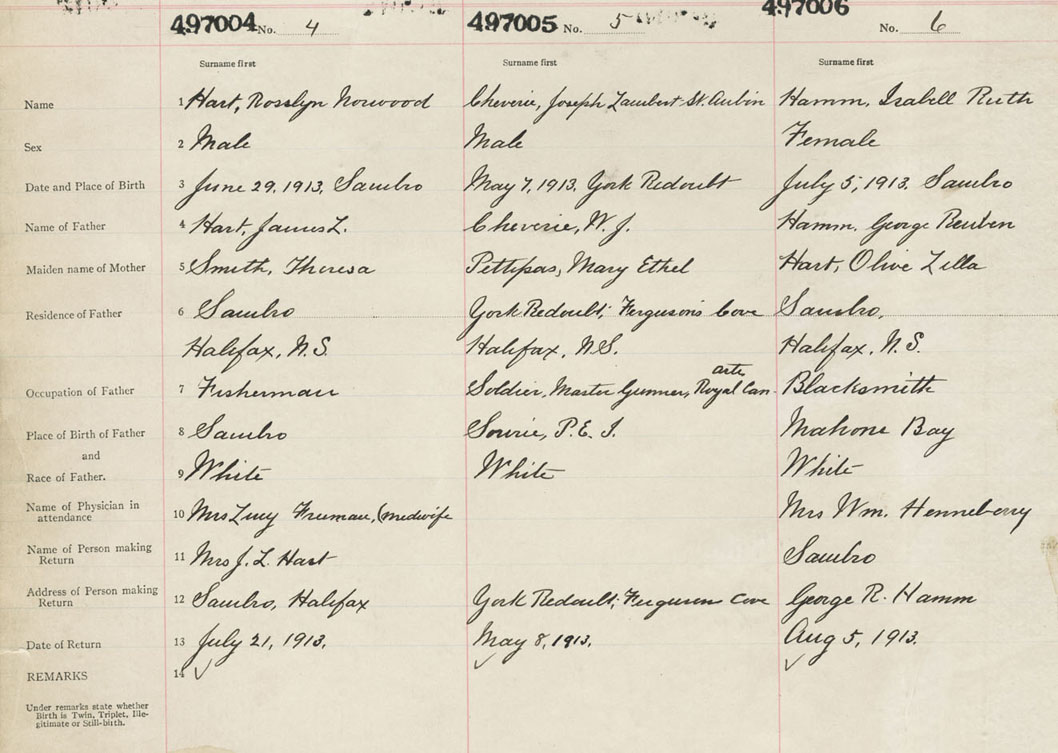 497004 No. 4 497005 No. 5 497006 No. 6
Surname first Surname first Surname first
Name 1 Hart, Rosslyn Norwood Cheverie, Joseph Lambert St. Aubin Hamm, Isabell Ruth
Sex 2 Male Male Female
Date and Place of Birth 3 June 29, 1913, Sambro May 7, 1913, York Redoubt July 5, 1913. Sambro
Name of Father 4 Hart, James L. Cheverie, W. J. Hamm, George Reuben
Maiden name of Mother 5 Smith, Theresa Pettipas, Mary Ethel Hart, Olive Zilla
Residence of Father 6 Sambro York Redoubt, Ferguson's Cove Sambro,
Halifax, N.S. Halifax, N.S. Halifax, N.S.
arty
Occupation of Father 7 Fisherman Soldier, Master Gunner, Royal Can. Blacksmith
Place of Birth of Father 8 Sambro Sourie, P.E.I. Mahone Bay
and
Race of Father. 9 White White White
Name of Physician in
attendance 10 Mrs Lucy Freeman, (medwife Mrs Wm. Henneberry
Name of Person making
Return 11 Mrs J. L. Hart Sambro
Address of Person making
Return 12 Sambro, Halifax York Redoubt, Ferguson Cove George R. Hamm
Date of Return 13 July 21, 1913. May 8, 1913. Aug 5, 1913.
REMARKS 14
Under remarks state whether
Birth is Twin, Triplet, Ille-
gitimate or Still-birth.